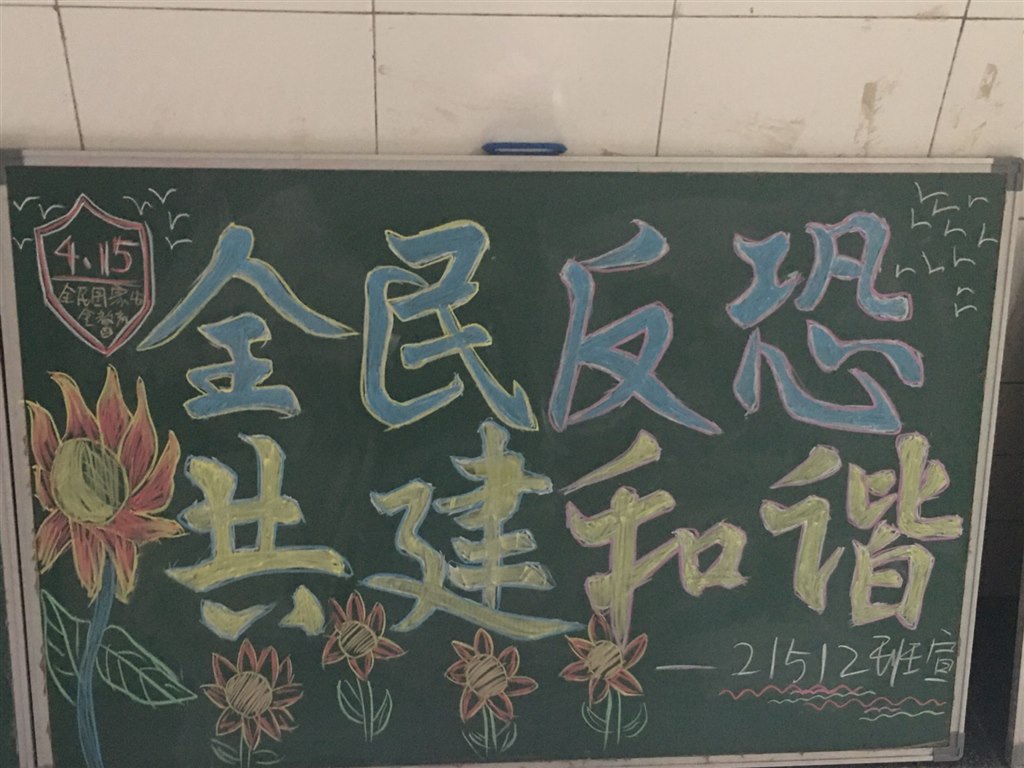 4.15
全民国家安
全教育日
全民反恐
共建和谐
—21512班宣